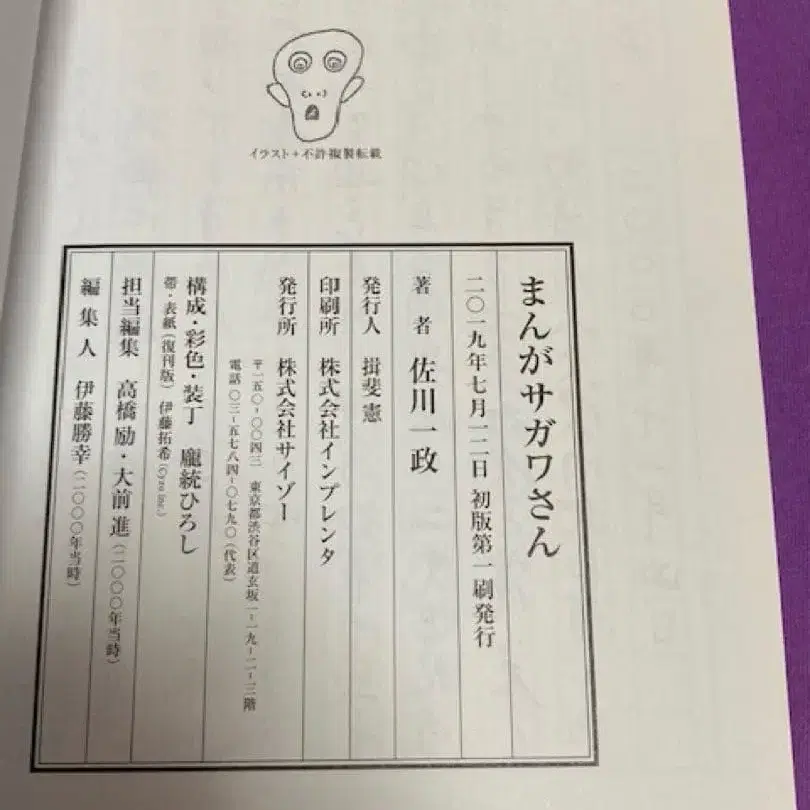 イラスト+不許複製転載
まんがサガワさん
二〇一九年七月一二日 初版第一刷発行
著者 佐川一政
発行人 揖斐憲
印刷所 株式会社インプレンタ
発行所 株式会社サイゾー
〒一五〇-〇〇四三 東京都渋谷区道玄坂一-一九-二-三階
電話 〇三-五七八四-〇七九〇(代表)
構成・彩色・装丁 龐統ひろし
帯・表紙(復刊版) 伊藤拓希(Cyzo inc.)
担当編集 高橋励・大前進(二〇〇〇年当時)
編集人 伊藤勝幸(二〇〇〇年当時)